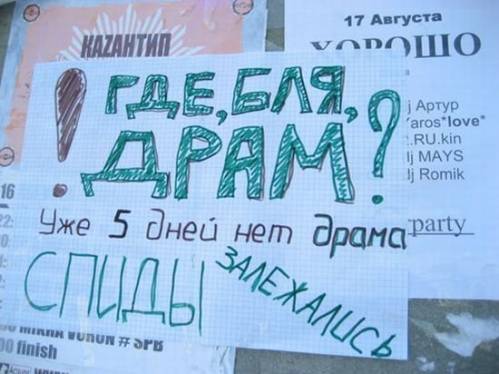 КАZАНТИП
17 Августа
ХОРОШО
! ГДЕ, БЛЯ,
ДРАМ?
j Артур
aros*love*
.RU.kin
lj MAYS
lj Romik
party
Уже 5 дней нет драма
СПИДЫ
ЗАЛЕЖАЛИСЬ
16
22:
# SPB
00 finish